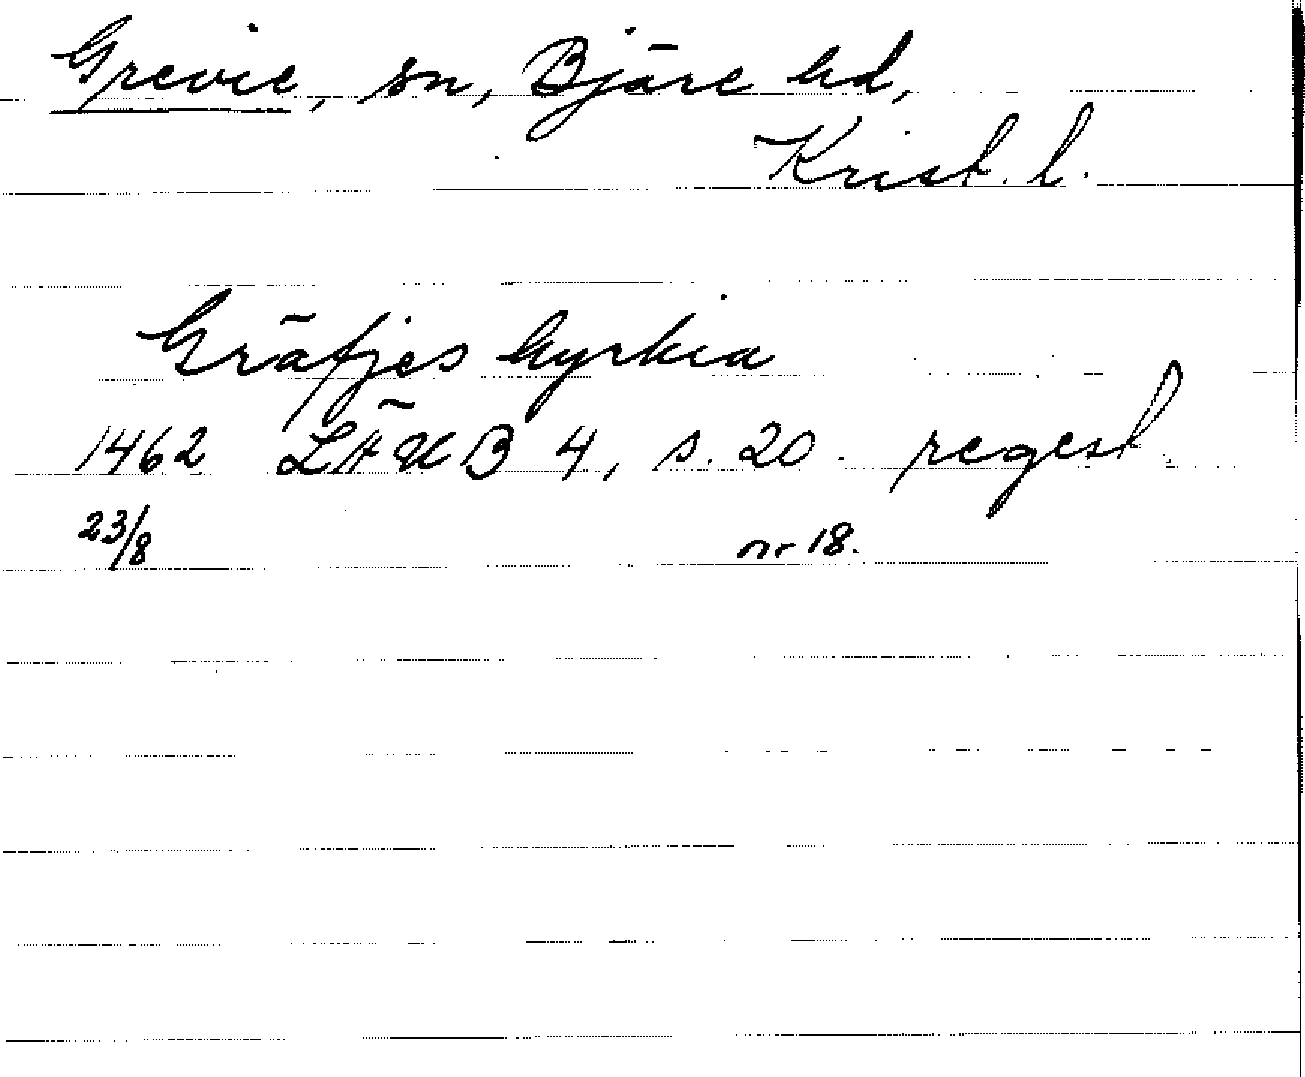 Grevie, sn, Bjäre hd,
Krist. l.
Gräfjes kyrkia
1462 LÄUB 4, s. 20. regest
23/8 nr 18.